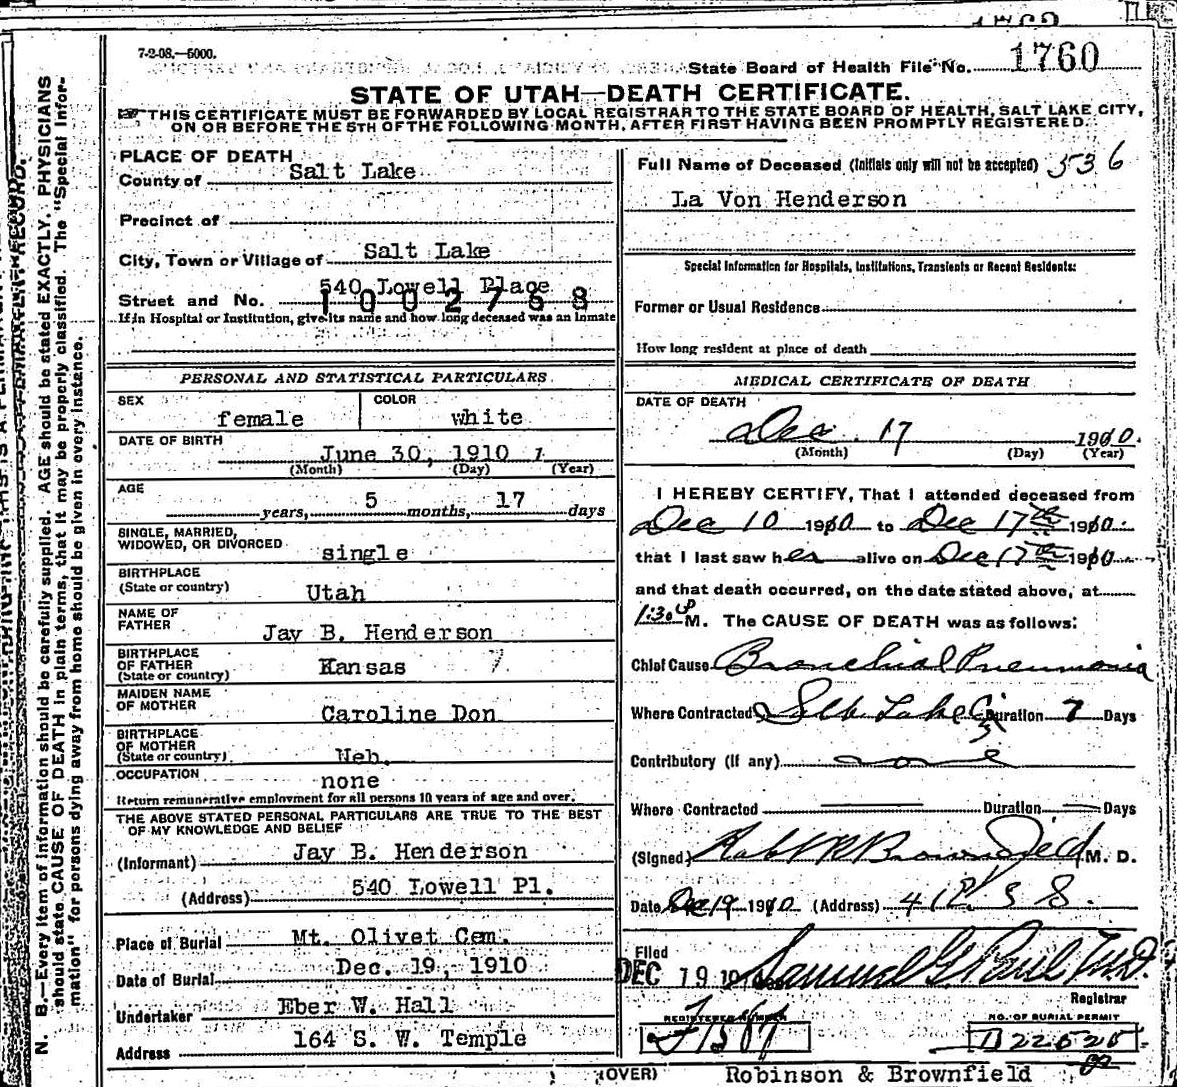 7-2-08.—5000.
State Board of Health File No. 1760
STATE OF UTAH—DEATH CERTIFICATE.
THIS CERTIFICATE MUST BE FORWARDED BY LOCAL REGISTRAR TO THE STATE BOARD OF HEALTH, SALT LAKE CITY,
ON OR BEFORE THE 5TH OF THE FOLLOWING MONTH, AFTER FIRST HAVING BEEN PROMPTLY REGISTERED.
N. B.—Every item of information should be carefully supplied. AGE should be stated EXACTLY. PHYSICIANS
should state CAUSE OF DEATH in plain terms, that it may be properly classified. The "Special Infor-
mation" for persons dying away from home should be given in every instance.
PLACE OF DEATH
County of Salt Lake
Precinct of
City, Town or Village of Salt Lake
Street and No. 540 Lowell Place
1002768
If in Hospital or Institution, give its name and how long deceased was an inmate
PERSONAL AND STATISTICAL PARTICULARS
SEX female COLOR white
DATE OF BIRTH
June 30, 1910 1
(Month) (Day) (Year)
AGE
years, 5 months, 17 days
SINGLE, MARRIED,
WIDOWED, OR DIVORCED single
BIRTHPLACE
(State or country) Utah
NAME OF
FATHER Jay B. Henderson
BIRTHPLACE
OF FATHER
(State or country) Kansas 7
MAIDEN NAME
OF MOTHER Caroline Don
BIRTHPLACE
OF MOTHER
(State or country) Neb.
OCCUPATION none
Return remunerative employment for all persons 10 years of age and over.
THE ABOVE STATED PERSONAL PARTICULARS ARE TRUE TO THE BEST
OF MY KNOWLEDGE AND BELIEF
(Informant) Jay B. Henderson
(Address) 540 Lowell Pl.
Place of Burial Mt. Olivet Cem.
Date of Burial Dec. 19, 1910
Undertaker Eber W. Hall
Address 164 S. W. Temple
Full Name of Deceased (Initials only will not be accepted) 536
La Von Henderson
Special Information for Hospitals, Institutions, Transients or Recent Residents:
Former or Usual Residence
How long resident at place of death
MEDICAL CERTIFICATE OF DEATH
DATE OF DEATH
Dec. 17 1910.
(Month) (Day) (Year)
I HEREBY CERTIFY, That I attended deceased from
Dec 10 1910 to Dec 17th 1910.
that I last saw her alive on Dec 17th 1910
and that death occurred, on the date stated above, at
1:30 P M. The CAUSE OF DEATH was as follows:
Chief Cause Bronchial Pneumonia
Where Contracted Salt Lake City Duration 7 Days
Contributory (If any) none
Where Contracted Duration Days
(Signed) Robt R Brownfield M. D.
Date Dec 19 1910 (Address)
Filed
DEC 19 19 Samuel G. Paul M.D.
Registrar
REGISTERED NUMBER
NO. OF BURIAL PERMIT
B22525
(OVER) Robinson & Brownfield